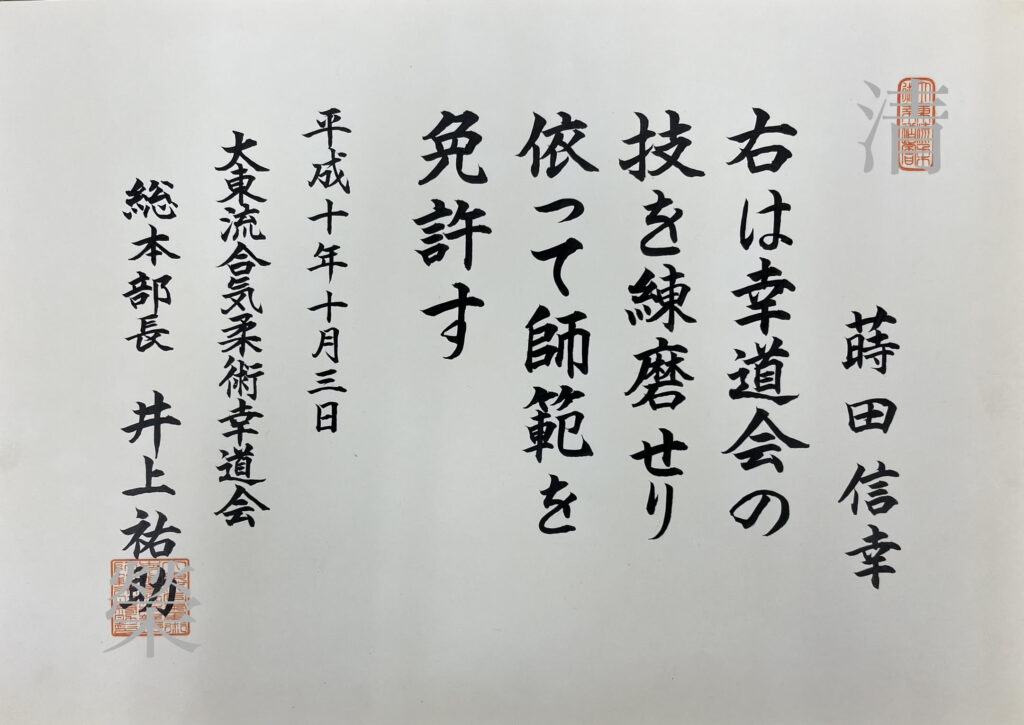 蒔田信幸
右は幸道会の
技を練磨せり
依って師範を
免許す
平成十年十月三日
大東流合気柔術幸道会
総本部長 井上祐助
清
薬